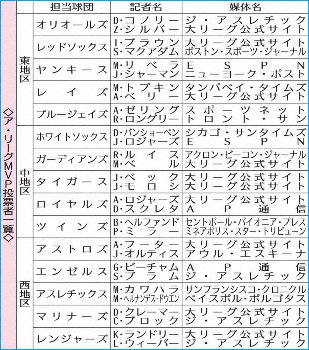 ◇ア・リーグMVP投票者一覧◇
担当球団 記者名 媒体名
東地区
オリオールズ D・コノリー ジ・アスレチック
Z・シルバー 大リーグ公式サイト
レッドソックス I・ブラウン 大リーグ公式サイト
S・マクアダム ボストン・スポーツ・ジャーナル
ヤンキース M・リベラ ESPN
J・シャーマン ニューヨーク・ポスト
レイズ M・トプキン タンパベイ・タイムズ
A・ベリー 大リーグ公式サイト
ブルージェイズ A・ゼリング スポーツネット
R・ロングリー トロント・サン
中地区
ホワイトソックス D・バンショーベン シカゴ・サンタイムズ
J・ロジャーズ ESPN
ガーディアンズ R・ルイス アクロン・ビーコン・ジャーナル
M・ベル 大リーグ公式サイト
タイガース J・ベック 大リーグ公式サイト
J・モロシ 大リーグ公式サイト
ロイヤルズ A・ロジャーズ 大リーグ公式サイト
D・スクレタ AP通信
ツインズ B・ヘルファンド セントポール・パイオニア・プレス
P・ミラー ミネアポリス・スター・トリビューン
西地区
アストロズ A・フーター 大リーグ公式サイト
J・オルティス アウル・エスキーナ
エンゼルス G・ビーチャム AP通信
S・ブラム ジ・アスレチック
アスレチックス M・カワハラ サンフランシスコ・クロニクル
M・ヘルナンデス・ドウエン ベイスボル・ボルゴタス
マリナーズ D・クレーマー 大リーグ公式サイト
C・ブロック ジ・アスレチック
レンジャーズ K・ランドリー 大リーグ公式サイト
L・ウィーバー ジ・アスレチック